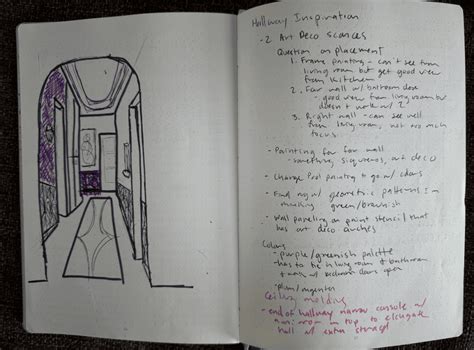 Hallway Inspiration
-2 Art Deco sconces
Question on placement
1. Frame painting - can't see from
living room but get good view
from kitchen
2. Far wall w/ bathroom door
- good view from living room but
doesn't work w/ 2
3. Right wall - can see well
from living room, not as much
focus
- Painting for far wall
- something, art deco
- Change Pool painting to go w/ colors
- Find rug w/ geometric patterns I'm
thinking green/brownish
- Wall paneling or paint stencil that
has art deco arches
Colors
- purple/greenish palette
- has to tie in living room & bathroom
w/ bedroom doors open
- plum/magenta
Ceiling molding
- end of hallway narrow console w/
mirror on top to elongate
hall w/ extra storage